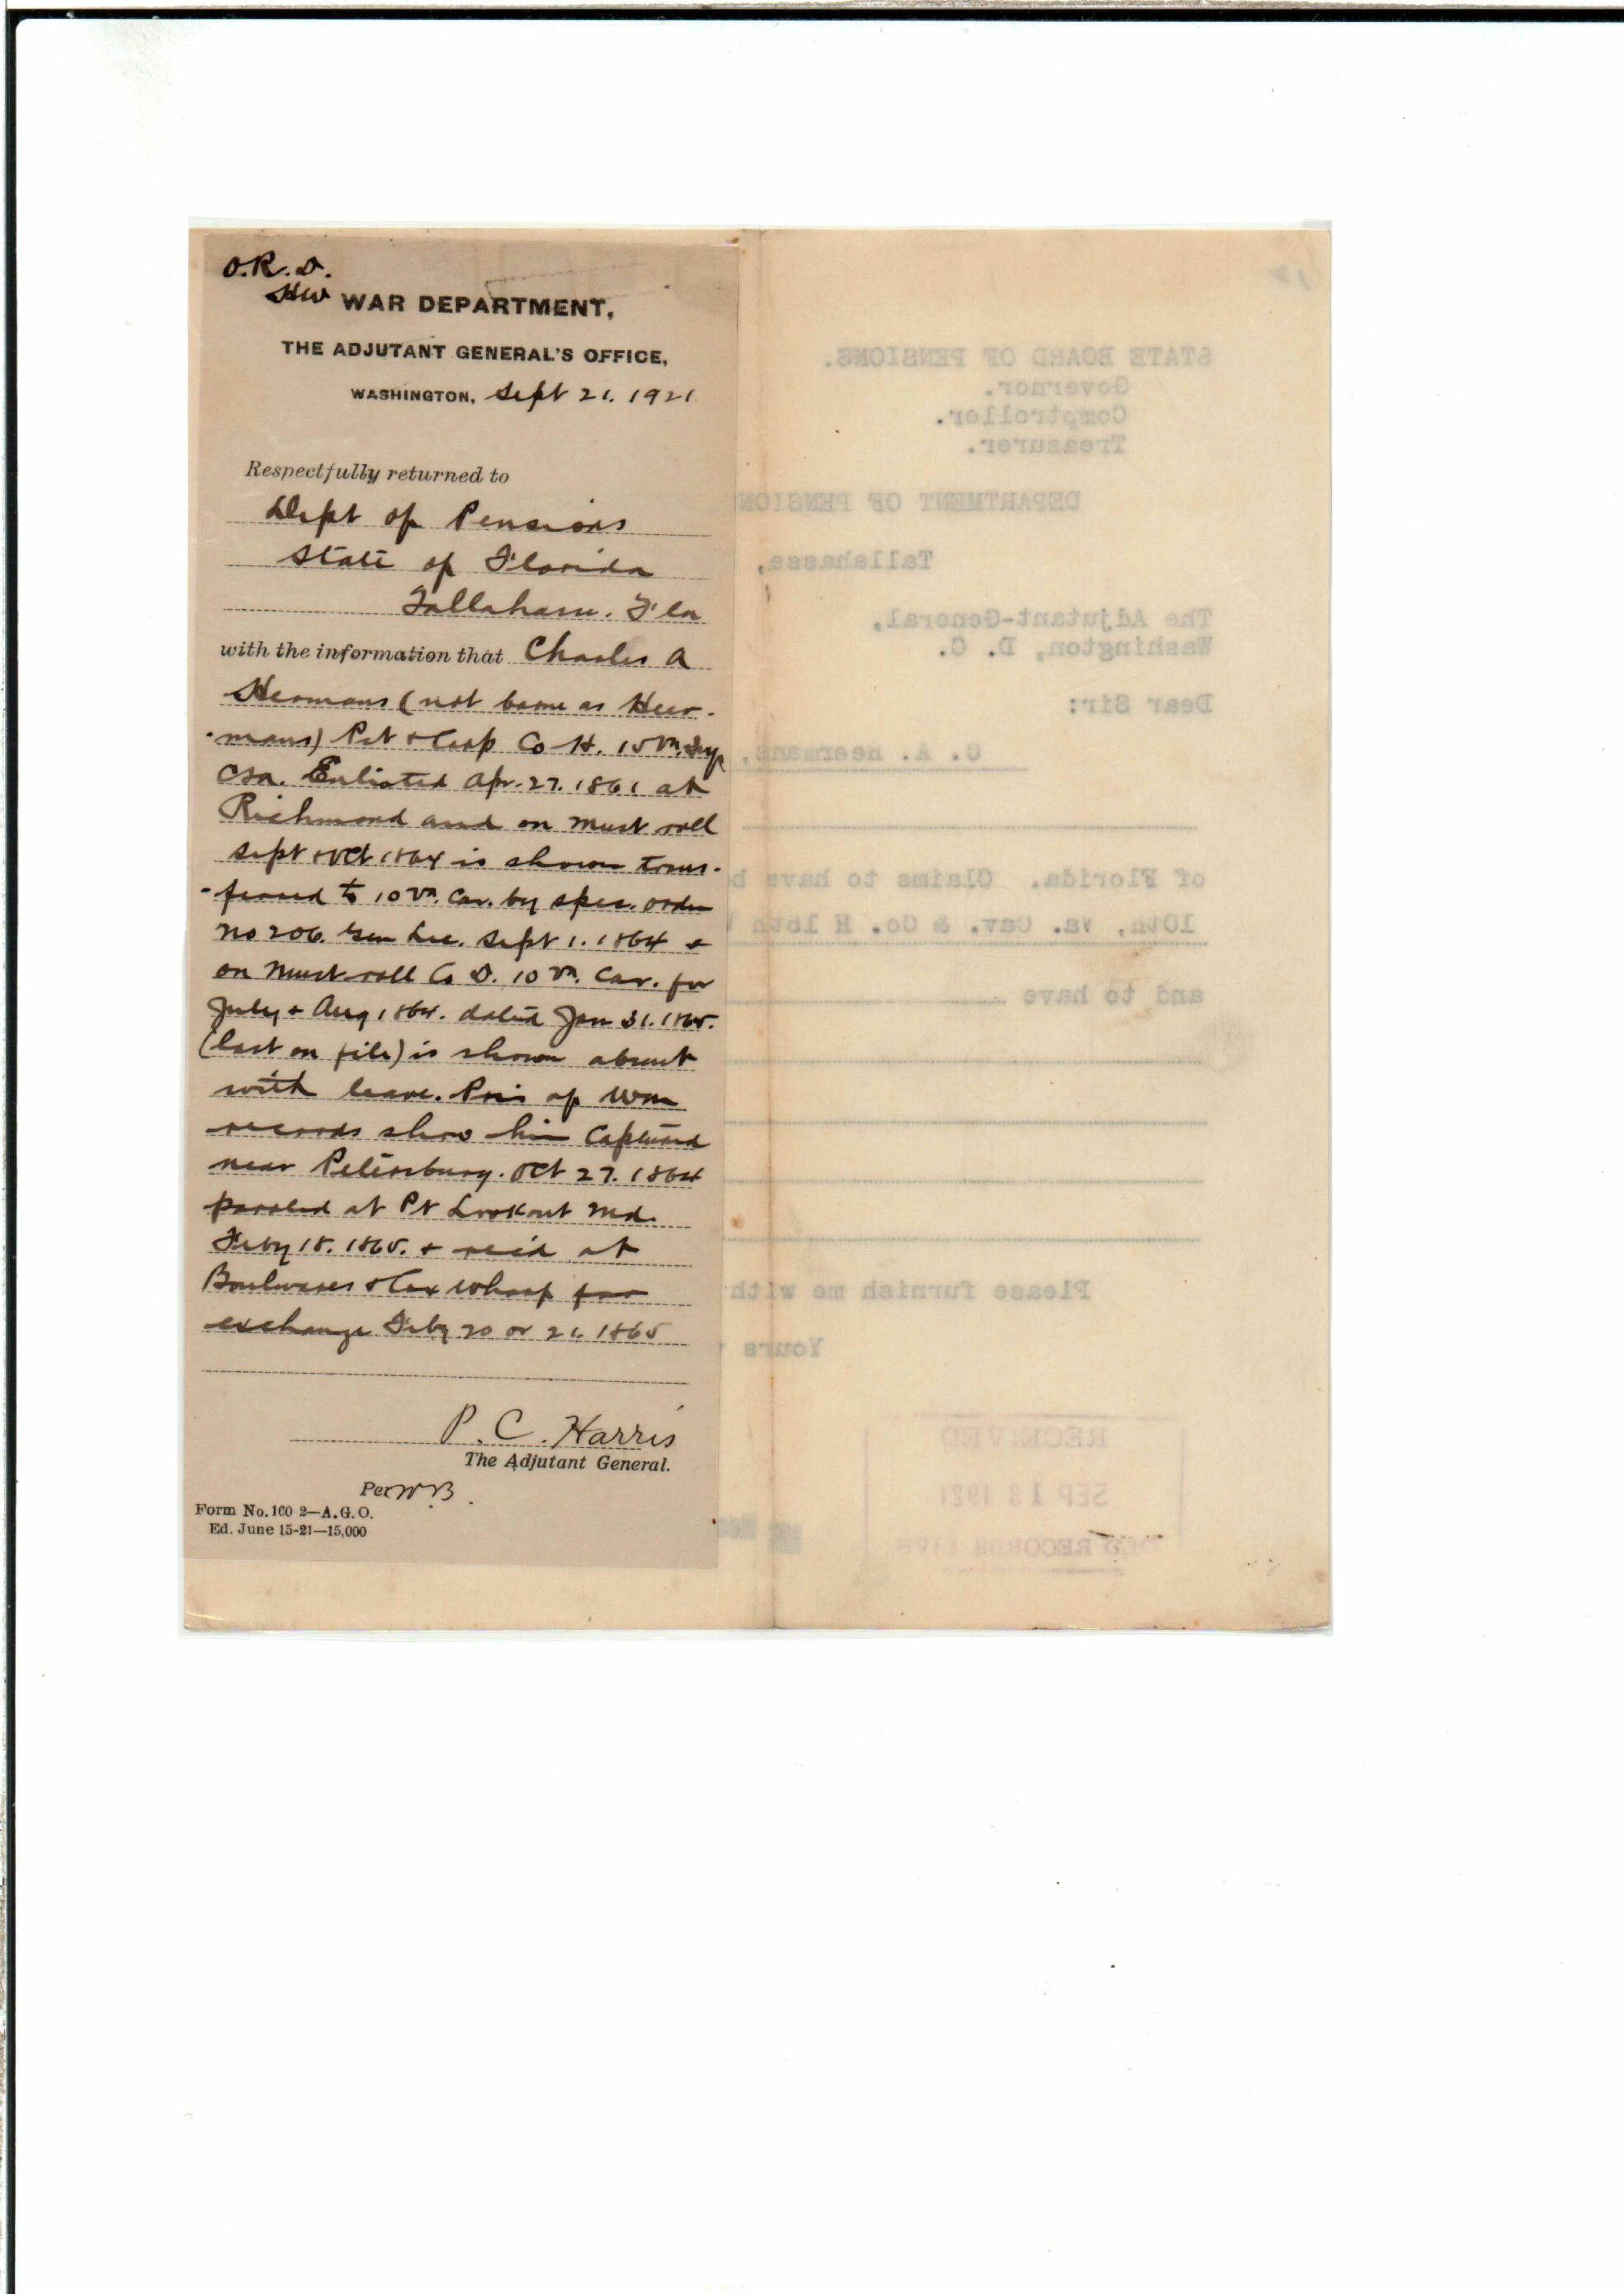 O.R.D.
HW WAR DEPARTMENT,
THE ADJUTANT GENERAL'S OFFICE,
WASHINGTON, Sept 21. 1921
Respectfully returned to
Dept of Pensions
State of Florida
Tallahasse. Fla
with the information that Charles A
Hermans (not borne as Heer-
-mans) Pvt & Corp Co H. 15 Va. Inf
CSA. Enlisted Apr. 27. 1861 at
Richmond and on Must roll
Sept & Oct 1864 is shown trans-
-ferred to 10 Va. Cav. by spec. order
No 206. Gen Lee. Sept 1. 1864 &
on Must roll Co D. 10 Va. Cav. for
July & Aug 1864. dated Jan 31. 1865.
(last on file) is shown absent
with leave. Pris of War
records show him Captured
near Petersburg. Oct 27. 1864
paroled at Pt Lookout Md.
Feby 18. 1865. & rec'd at
Boulwares & Cox Wharf for
exchange Feby 20 or 21. 1865
P. C. Harris
The Adjutant General.
Per W.B.
Form No. 160 2—A.G.O.
Ed. June 15-21—15,000
STATE BOARD OF PENSIONS.
Governor.
Comptroller.
Treasurer.
DEPARTMENT OF PENSION
Tallahasse,
The Adjutant-General,
Washington, D. C.
Dear Sir:
C. A. Heermans,
of Florida. Claims to have b
10th, Va. Cav. & Co. H 15th V
and to have
Please furnish me with
Yours
RECEIVED
SEP 13 1921
OLD RECORDS DIV'N